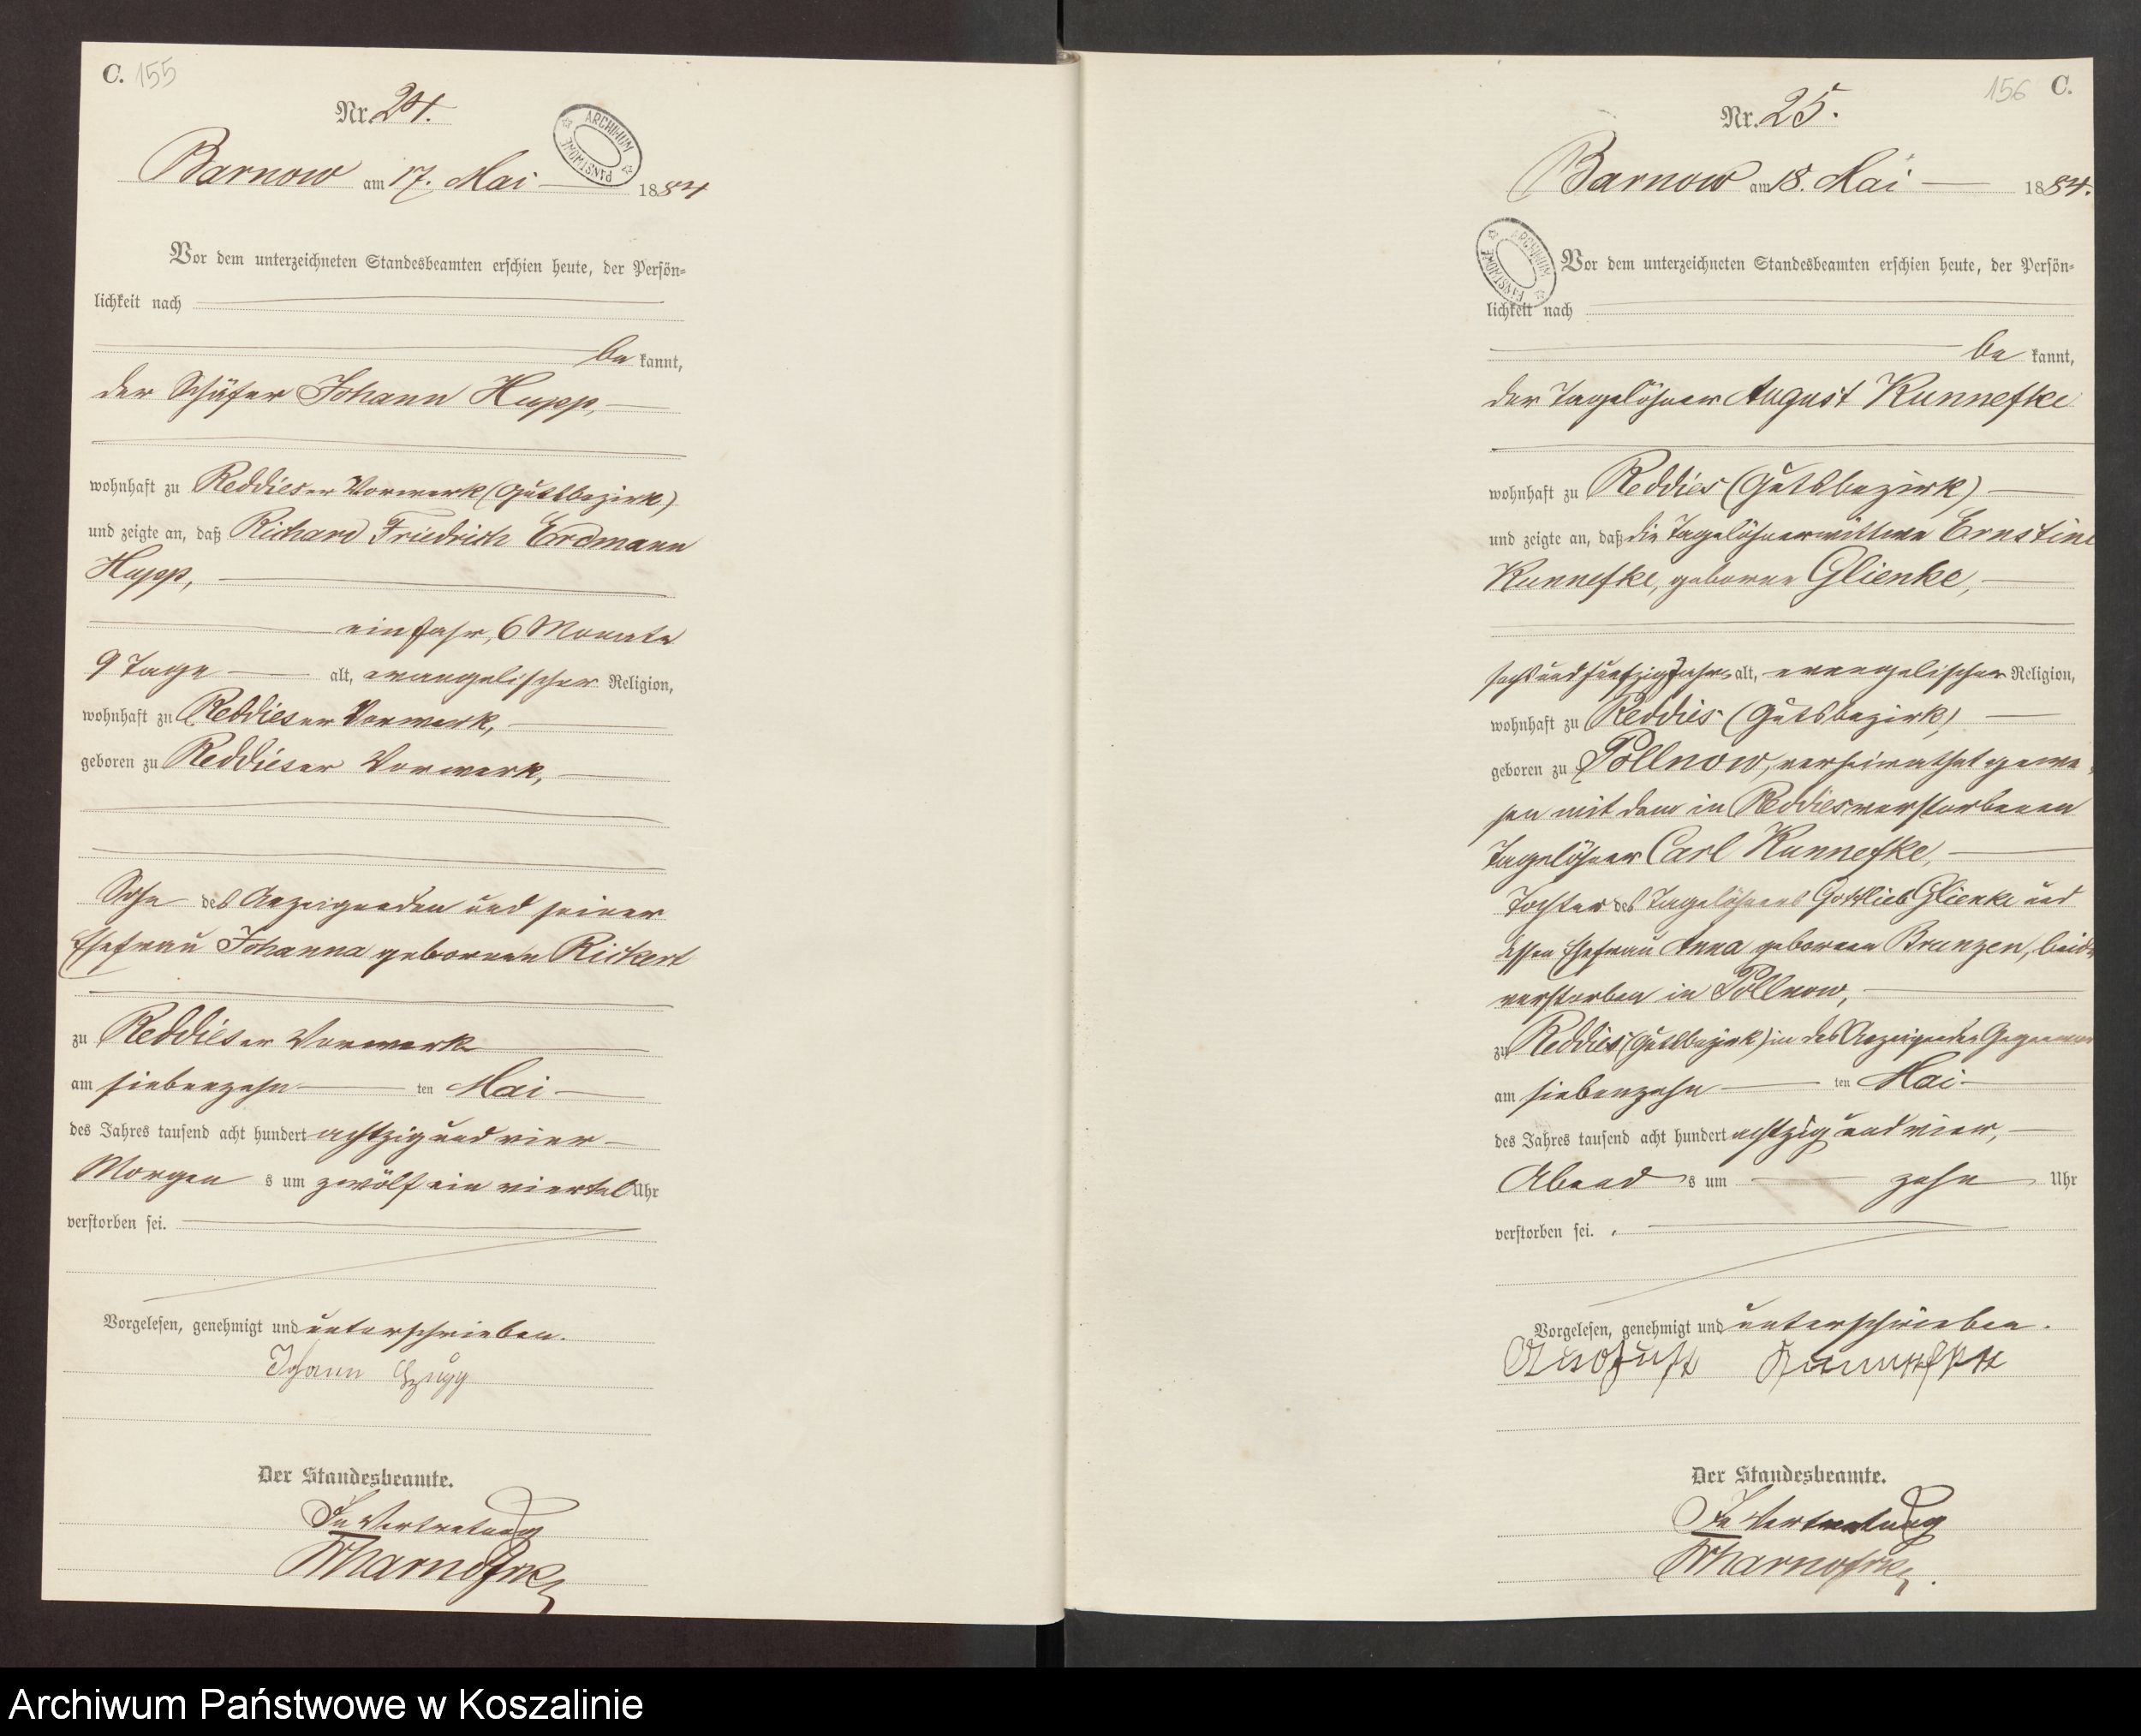 C. 155
Nr. 24.
ARCHIWUM PAŃSTWOWE
Barnow am 17. Mai 1884
Vor dem unterzeichneten Standesbeamten erschien heute, der Persön=
lichkeit nach
be kannt,
der Schäfer Johann Hupp,
wohnhaft zu Reddieser Vorwerk (Gutsbezirk)
und zeigte an, daß Richard Friedrich Erdmann
Hupp,
ein Jahr, 6 Monate
9 Tage alt, evangelischer Religion,
wohnhaft zu Reddieser Vorwerk,
geboren zu Reddieser Vorwerk,
Sohn des Anzeigenden und seiner
Ehefrau Johanna geborenen Rickert
zu Reddieser Vorwerk
am siebenzehn ten Mai
des Jahres tausend acht hundert achtzig und vier
Morgen s um zwölf ein viertel Uhr
verstorben sei.
Vorgelesen, genehmigt und unterschrieben.
Johann Hupp
Der Standesbeamte.
In Vertretung
156 C.
Nr. 25.
Barnow am 18. Mai 1884.
ARCHIWUM PAŃSTWOWE
Vor dem unterzeichneten Standesbeamten erschien heute, der Persön=
lichkeit nach
be kannt,
der Tagelöhner August Kunnefke
wohnhaft zu Reddies (Gutsbezirk)
und zeigte an, daß die Tagelöhnerwittwe Ernstine
Kunnefke, geborne Glienke,
sechsundfünfzig Jahre alt, evangelischer Religion,
wohnhaft zu Reddies (Gutsbezirk)
geboren zu Pollnow, verheirathet gewe-
sen mit dem in Reddies verstorbenen
Tagelöhner Carl Kunnefke,
Tochter des Tagelöhners Gottlieb Glienke und
dessen Ehefrau Anna geborenen Brunzen, beide
verstorben in Pollnow,
zu Reddies (Gutsbezirk) in des Anzeigenden Gegenwart
am siebenzehn ten Mai
des Jahres tausend acht hundert achtzig und vier,
Abend s um zehn Uhr
verstorben sei.
Vorgelesen, genehmigt und unterschrieben.
August Kunnefke
Der Standesbeamte.
In Vertretung
Archiwum Państwowe w Koszalinie